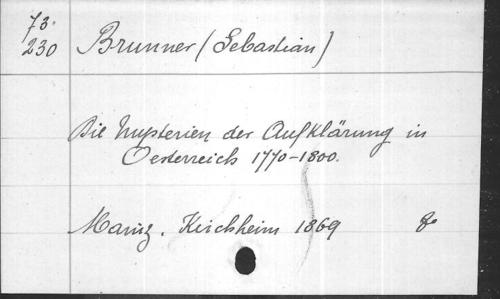 73.
230 Brunner (Sebastian)
Die Mysterien der Aufklärung in
Oesterreich 1770-1800.
Mainz. Kirchheim 1869 8o